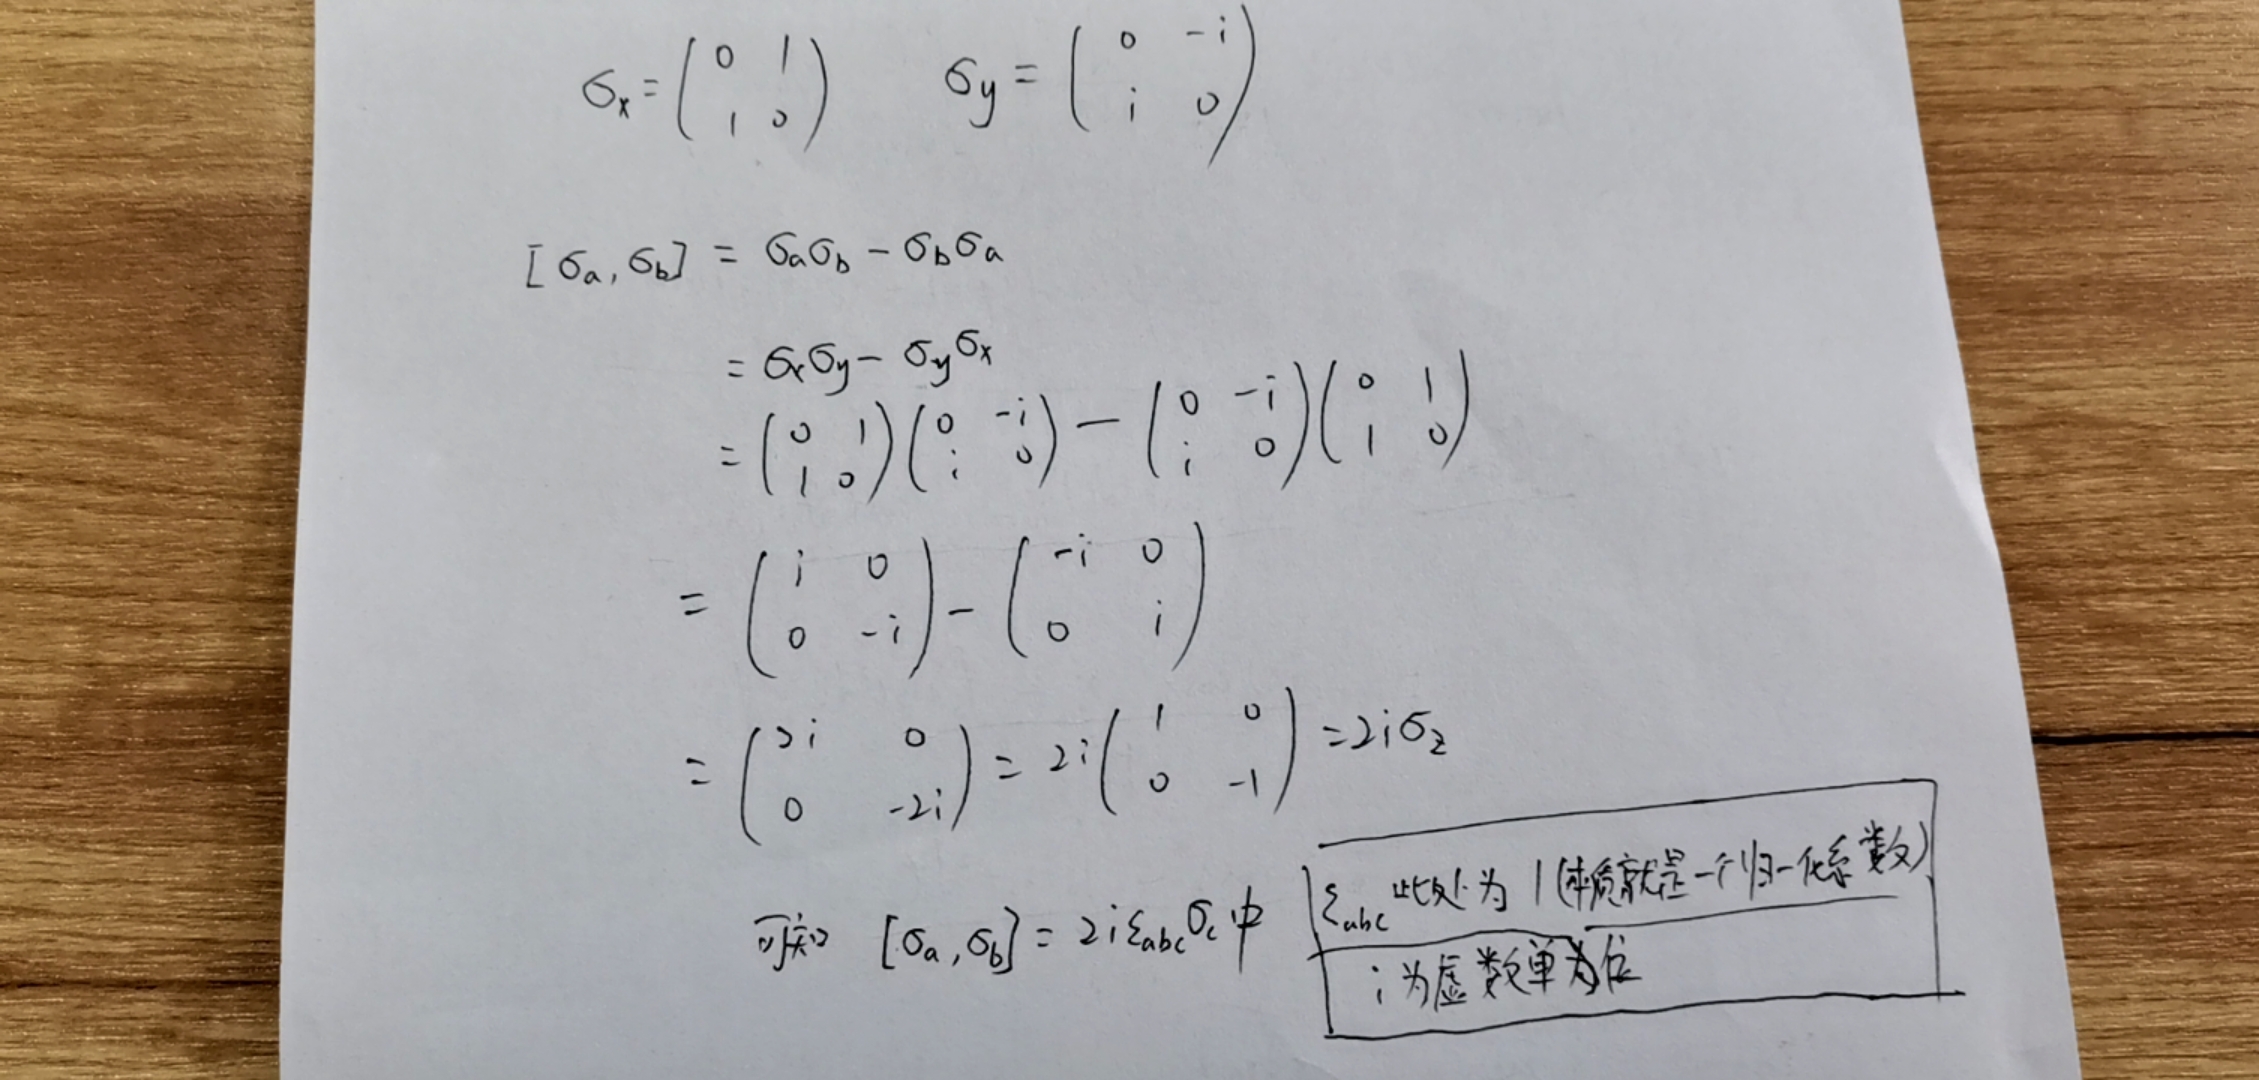 σx = (0 1; 1 0)  σy = (0 -i; i 0)
[σa, σb] = σaσb - σbσa
= σxσy - σyσx
= (0 1; 1 0)(0 -i; i 0) - (0 -i; i 0)(0 1; 1 0)
= (i 0; 0 -i) - (-i 0; 0 i)
= (2i 0; 0 -2i) = 2i(1 0; 0 -1) = 2iσz
可知 [σa, σb] = 2iεabcσc 中
εabc 此处为 1 (本质就是一个归一化系数)
i 为虚数单为位